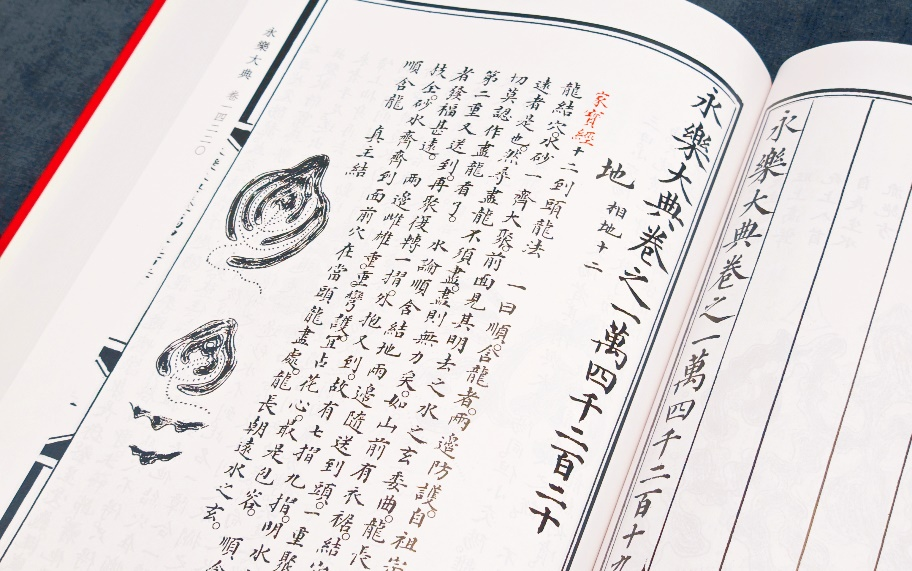 永樂大典卷之一萬四千二百十九
永樂大典卷之一萬四千二百二十
地 相地十二
家寶經十二到頭龍法 一曰順含龍者。兩邊防護。自祖宗
龍結穴。水砂一齊大聚前面見其明去之水之玄委曲。龍長
遠者是也。然 盡龍不須盡。盡則無力矣。如山前有衣裾。結穴
切莫認作盡龍看了。水論順含結地兩邊隨送到頭。一重聚
第二重又送到再聚復轉一摺。外抱又到。故有七摺九摺。明水
者發福甚遠。兩邊雌雄重重彎護。宜占花心。最是包容。
技全。砂水齊齊到面前穴在當頭龍盡處。龍長朝遠水之玄。順含
順含龍 真主結
永樂大典 卷一四二二〇